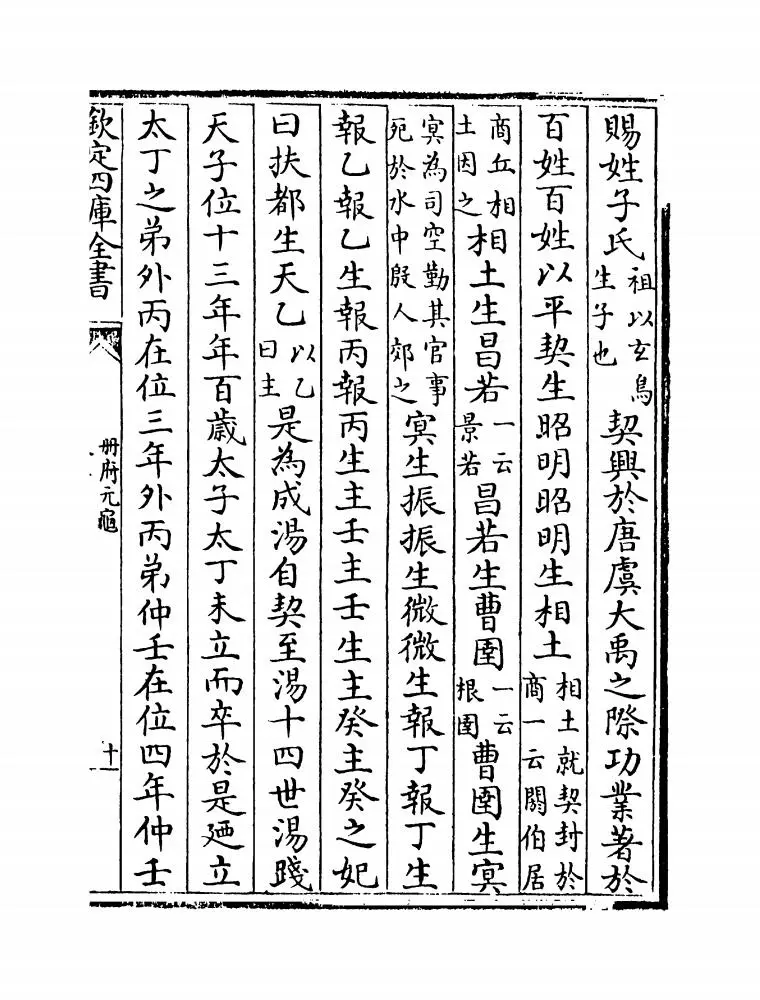 賜姓子氏祖以玄鳥生子也契興於唐虞大禹之際功業著於
百姓百姓以平契生昭明昭明生相土相土就契封於商一云閼伯居
商丘相土因之相土生昌若一云景若昌若生曹圉一云根圉曹圉生冥
冥為司空勤其官事死於水中殷人郊之冥生振振生微微生報丁報丁生
報乙報乙生報丙報丙生主壬主壬生主癸主癸之妃
曰扶都生天乙以乙日主是為成湯自契至湯十四世湯踐
天子位十三年年百歲太子太丁未立而卒於是廼立
太丁之弟外丙在位三年外丙弟仲壬在位四年仲壬
欽定四庫全書
冊府元龜
十一